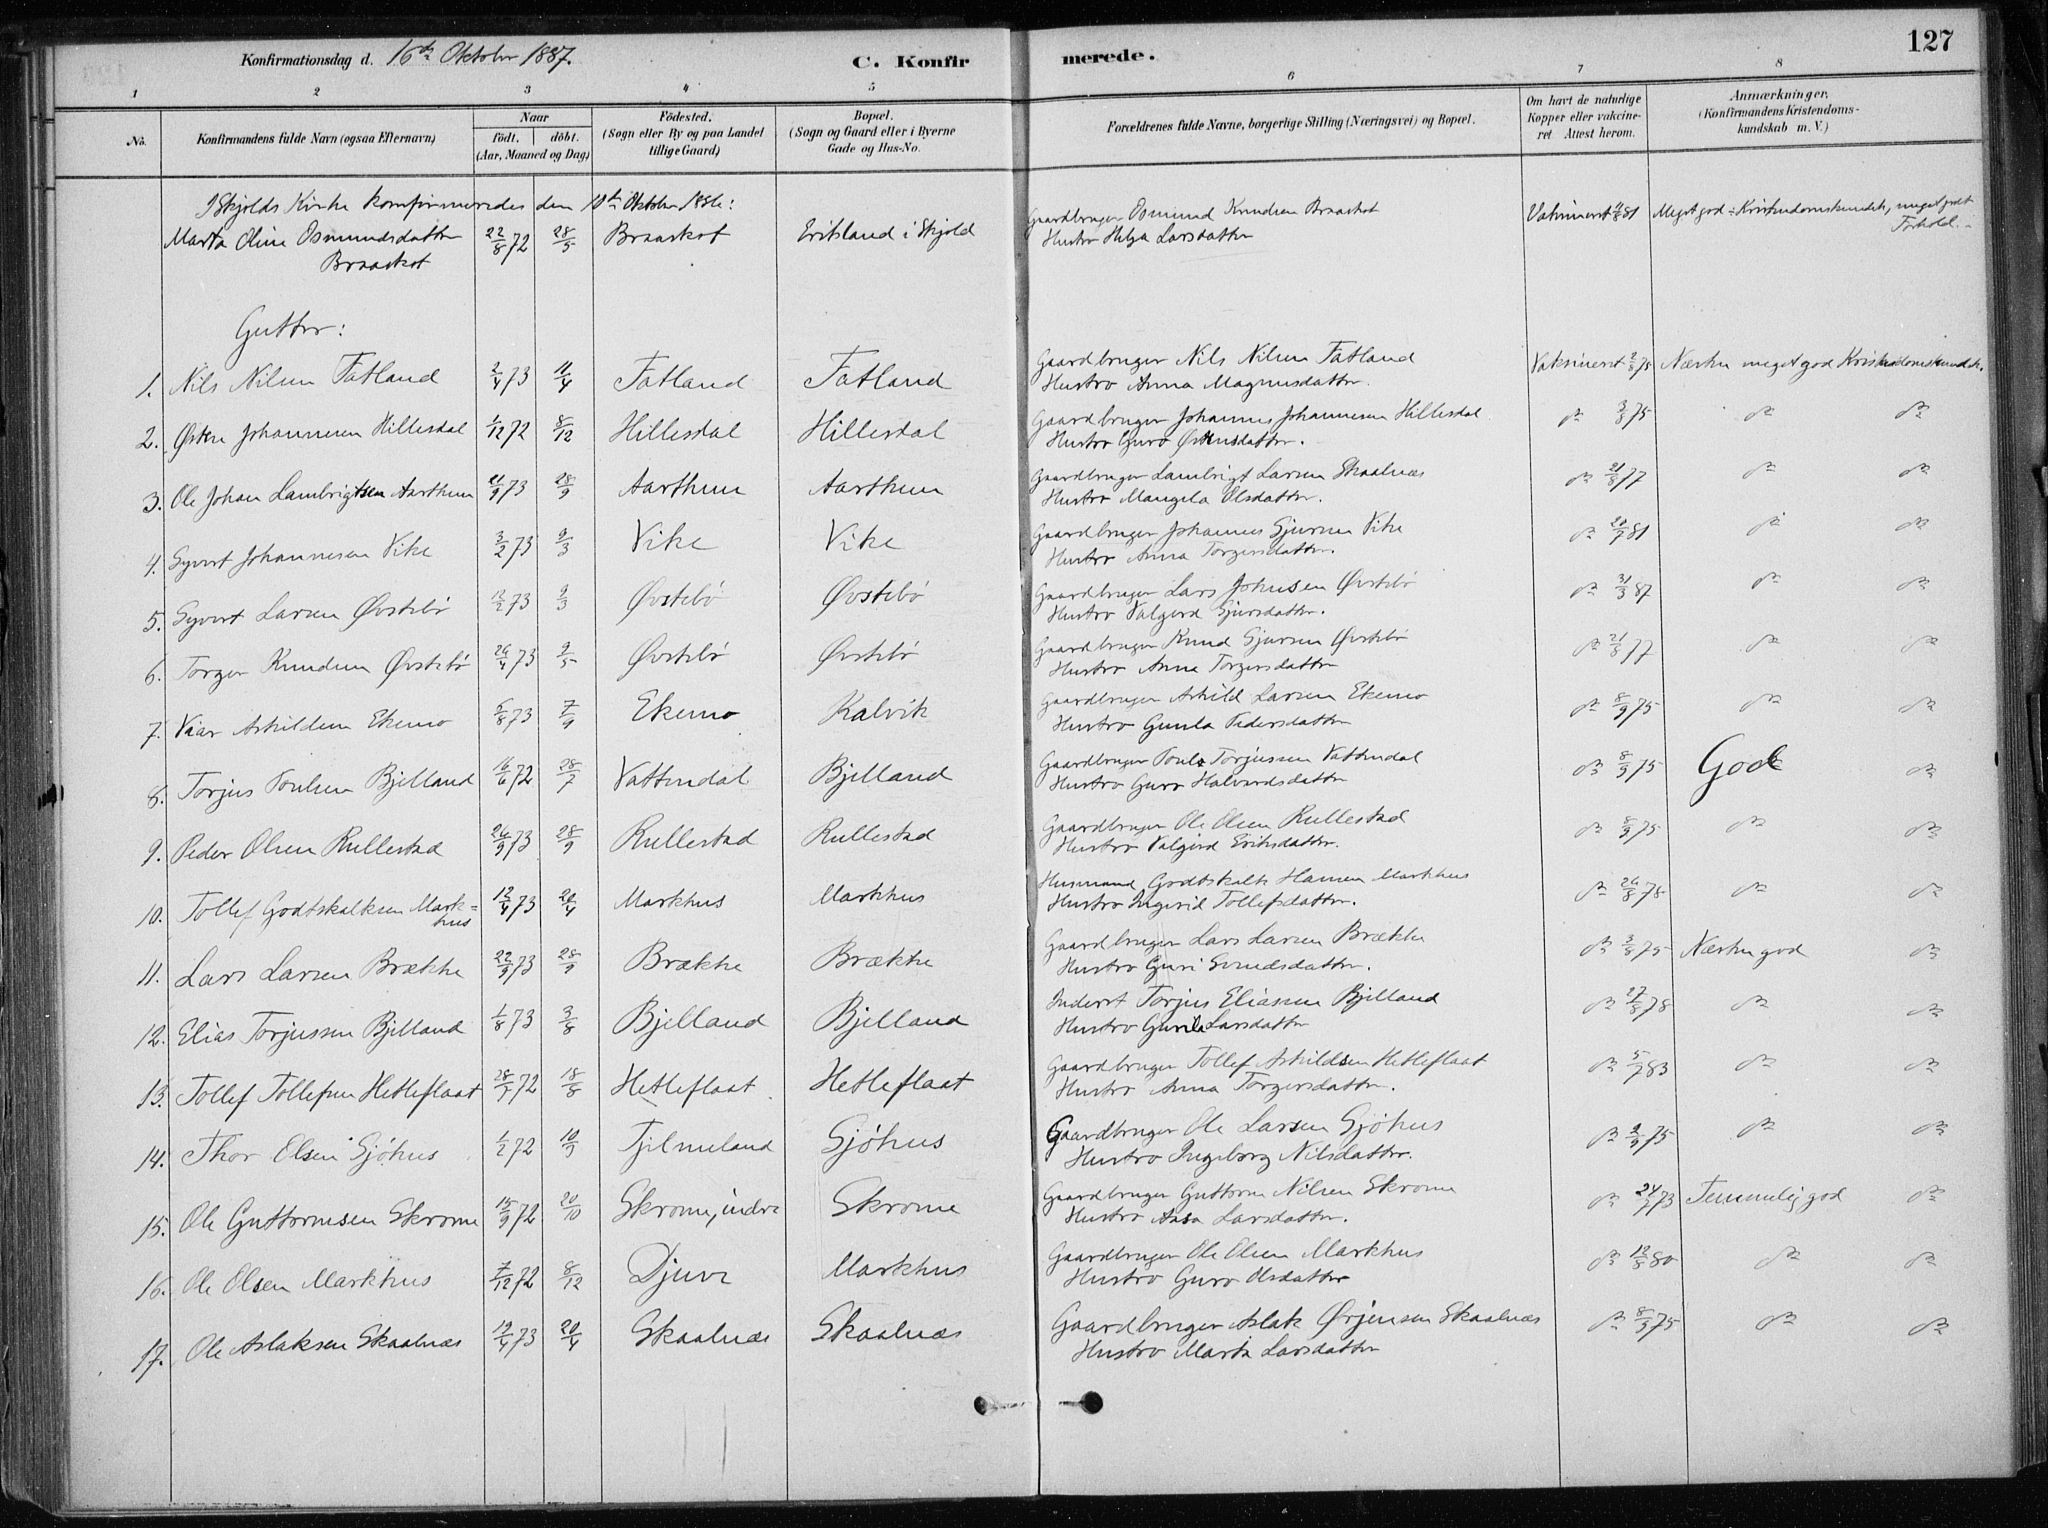 Konfirmationsdag d. 16de Oktober 1887. C. Konfir merede. 127
1 2 3 4 5 6 7 8
No. Konfirmandens fulde Navn (ogsaa Efternavn) Naar Födested. Bopæl. Forældrenes fulde Navne, borgerlige Stilling (Næringsvei) og Bopæl. Om havt de naturlige Anmærkninger.
födt. döbt. (Sogn eller By og paa Landet (Sogn og Gaard eller i Byerne Kopper eller vakcine- (Konfirmandens Kristendoms-
(Aar, Maaned og Dag) tillige Gaard) Gade og Hus-No. ret Attest herom. kundskab m. V.)
I Skjolds Kirke konfirmeredes den 10de Oktober 1886:
Marta Oline Osmundsdatter 22/8 72 28/5 Braaskot Eriksland i Skjold Gaardbruger Osmund Knudsen Braaskot Vakineret 4/8 81 Meget god Kristendomskundsk, meget godt
Braaskot Hustro Helga Larsdatter Forhold.
Gutter:
1. Nils Nilsen Fatland 2/4 73 11/4 Fatland Fatland Gaardbruger Nils Nilsen Fatland Vaksineret 2/8 75 Næsten meget god Kristendomskundsk.
Hustro Anna Magnusdatter.
2. Østen Johannesen Hillesdal 1/12 72 8/12 Hillesdal Hillesdal Gaardbruger Johannes Johannesen Hillesdal do 3/8 75 do do
Hustro Guro Østensdatter.
3. Ole Johan Lambrigtsen Aarthun 21/9 73 28/9 Aarthun Aarthun Gaardbruger Lambrigt Larsen Skaalnæs do 21/8 77 do do
Hustro Mangela Olsdatter.
4. Syvert Johannesen Vike 3/2 73 9/3 Vike Vike Gaardbruger Johannes Sjursen Vike do 20/7 81 do do
Hustro Anna Torgersdatter.
5. Syvert Larsen Øvstebø 12/2 73 9/3 Øvstebø Øvstebø Gaardbruger Lars Johnsen Øvstebø do 31/3 87 do do
Hustro Valgerd Sjursdatter.
6. Torger Knudsen Øvstebø 26/4 73 2/5 Øvstebø Øvstebø Gaardbruger Knud Sjursen Øvstebø do 21/8 77 do do
Hustro Anna Torgersdatter
7. Viar Askildsen Ekemo 5/8 73 7/9 Ekemo Kalvik Gaardbruger Askild Larsen Ekemo do 8/9 75 do do
Hustro Gunla Pedersdatter
8. Torjus Poulsen Bjelland 16/6 72 28/7 Vattendal Bjelland Gaardbruger Poul Torjussen Vattendal do 8/9 75 God do
Hustro Guro Halvorsdatter
9. Peder Olsen Rullestad 26/9 73 28/9 Rullestad Rullestad Gaardbruger Ole Olsen Rullestad do 8/9 75 do do
Hustro Valgerd Eriksdatter.
10. Tollef Godtskalksen Mark- 12/4 73 20/4 Markhus Markhus Husmand Godtskalk Hansen Markhus do 26/8 78 do do
hus Hustro Ingerid Tollefsdatter.
11. Lars Larsen Brække 22/9 73 28/9 Brække Brække Gaardbruger Lars Larsen Brække do 3/8 75 Næsten god do
Hustro Guri Svendsdatter.
12. Elias Torjussen Bjelland 1/8 73 3/8 Bjelland Bjelland Inderst Torjus Eliassen Bjelland do 27/8 78 do do
Hustro Gunla Larsdatter
13. Tollef Tollefsen Hetleflaat 28/7 72 18/8 Hetleflaat Hetleflaat Gaardbruger Tollef Askildsen Hetleflaat do 5/7 83 do do
Hustro Anna Torgersdatter.
14. Thor Olsen Sjöhus 1/2 72 10/3 Tjelmeland Sjöhus Gaardbruger Ole Larsen Sjöhus do 2/9 75 do do
Hustro Ingeborg Nilsdatter.
15. Ole Guttormsen Skrome 15/9 72 20/10 Skrome, indre Skrome Gaardbruger Guttorm Nilsen Skrome do 24/7 73 Temmelig god do
Hustro Aasa Larsdatter.
16. Ole Olsen Markhus 7/12 72 8/12 Djuve Markhus Gaardbruger Ole Olsen Markhus do 12/8 80 do do
Hustro Guro Olsdatter
17. Ole Aslaksen Skaalnæs 12/4 73 20/4 Skaalnæs Skaalnæs Gaardbruger Aslak Ørjensen Skaalnæs do 8/9 75 do do
Hustro Marta Larsdatter